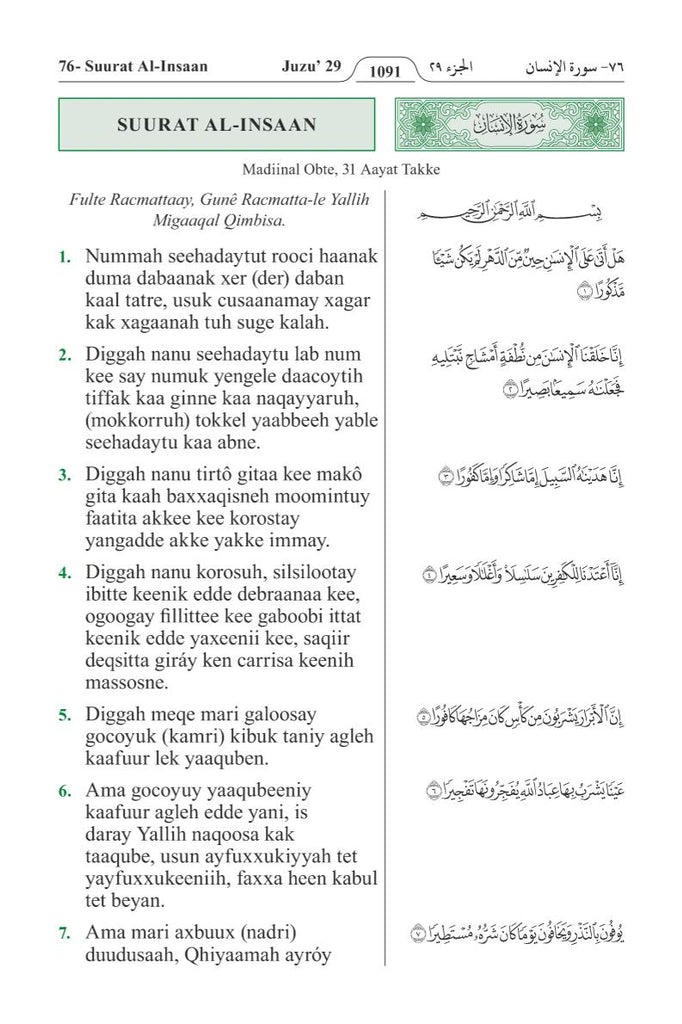 76- Suurat Al-Insaan Juzu’ 29 1091 الجزء ٢٩ ٧٦- سورة الإنسان
SUURAT AL-INSAAN
سُورَةُ الإِنسَانِ
Madiinal Obte, 31 Aayat Takke
Fulte Racmattaay, Gunê Racmatta-le Yallih
Migaaqal Qimbisa.
1. Nummah seehadaytut rooci haanak
duma dabaanak xer (der) daban
kaal tatre, usuk cusaanamay xagar
kak xagaanah tuh suge kalah.
2. Diggah nanu seehadaytu lab num
kee say numuk yengele daacoytih
tiffak kaa ginne kaa naqayyaruh,
(mokkorruh) tokkel yaabbeeh yable
seehadaytu kaa abne.
3. Diggah nanu tirtô gitaa kee makô
gita kaah baxxaqisneh moomintuy
faatita akkee kee korostay
yangadde akke yakke immay.
4. Diggah nanu korosuh, silsilootay
ibitte keenik edde debraanaa kee,
ogoogay fillittee kee gaboobi ittat
keenik edde yaxeenii kee, saqiir
deqsitta giráy ken carrisa keenih
massosne.
5. Diggah meqe mari galoosay
gocoyuk (kamri) kibuk taniy agleh
kaafuur lek yaaquben.
6. Ama gocoyuy yaaqubeeniy
kaafuur agleh edde yani, is
daray Yallih naqoosa kak
taaqube, usun ayfuxxukiyyah tet
yayfuxxukeeniih, faxxa heen kabul
tet beyan.
7. Ama mari axbuux (nadri)
duudusaah, Qhiyaamah ayróy
بِسْمِ اللَّهِ الرَّحْمَٰنِ الرَّحِيمِ
هَلْ أَتَىٰ عَلَى ٱلْإِنسَٰنِ حِينٌ مِّنَ ٱلدَّهْرِ لَمْ يَكُن شَيْـًٔا
مَّذْكُورًا ١
إِنَّا خَلَقْنَا ٱلْإِنسَٰنَ مِن نُّطْفَةٍ أَمْشَاجٍ نَّبْتَلِيهِ
فَجَعَلْنَٰهُ سَمِيعًۢا بَصِيرًا ٢
إِنَّا هَدَيْنَٰهُ ٱلسَّبِيلَ إِمَّا شَاكِرًا وَإِمَّا كَفُورًا ٣
إِنَّآ أَعْتَدْنَا لِلْكَٰفِرِينَ سَلَٰسِلَا۟ وَأَغْلَٰلًا وَسَعِيرًا ٤
إِنَّ ٱلْأَبْرَارَ يَشْرَبُونَ مِن كَأْسٍ كَانَ مِزَاجُهَا كَافُورًا ٥
عَيْنًا يَشْرَبُ بِهَا عِبَادُ ٱللَّهِ يُفَجِّرُونَهَا تَفْجِيرًا ٦
يُوفُونَ بِٱلنَّذْرِ وَيَخَافُونَ يَوْمًا كَانَ شَرُّهُۥ مُسْتَطِيرًا ٧